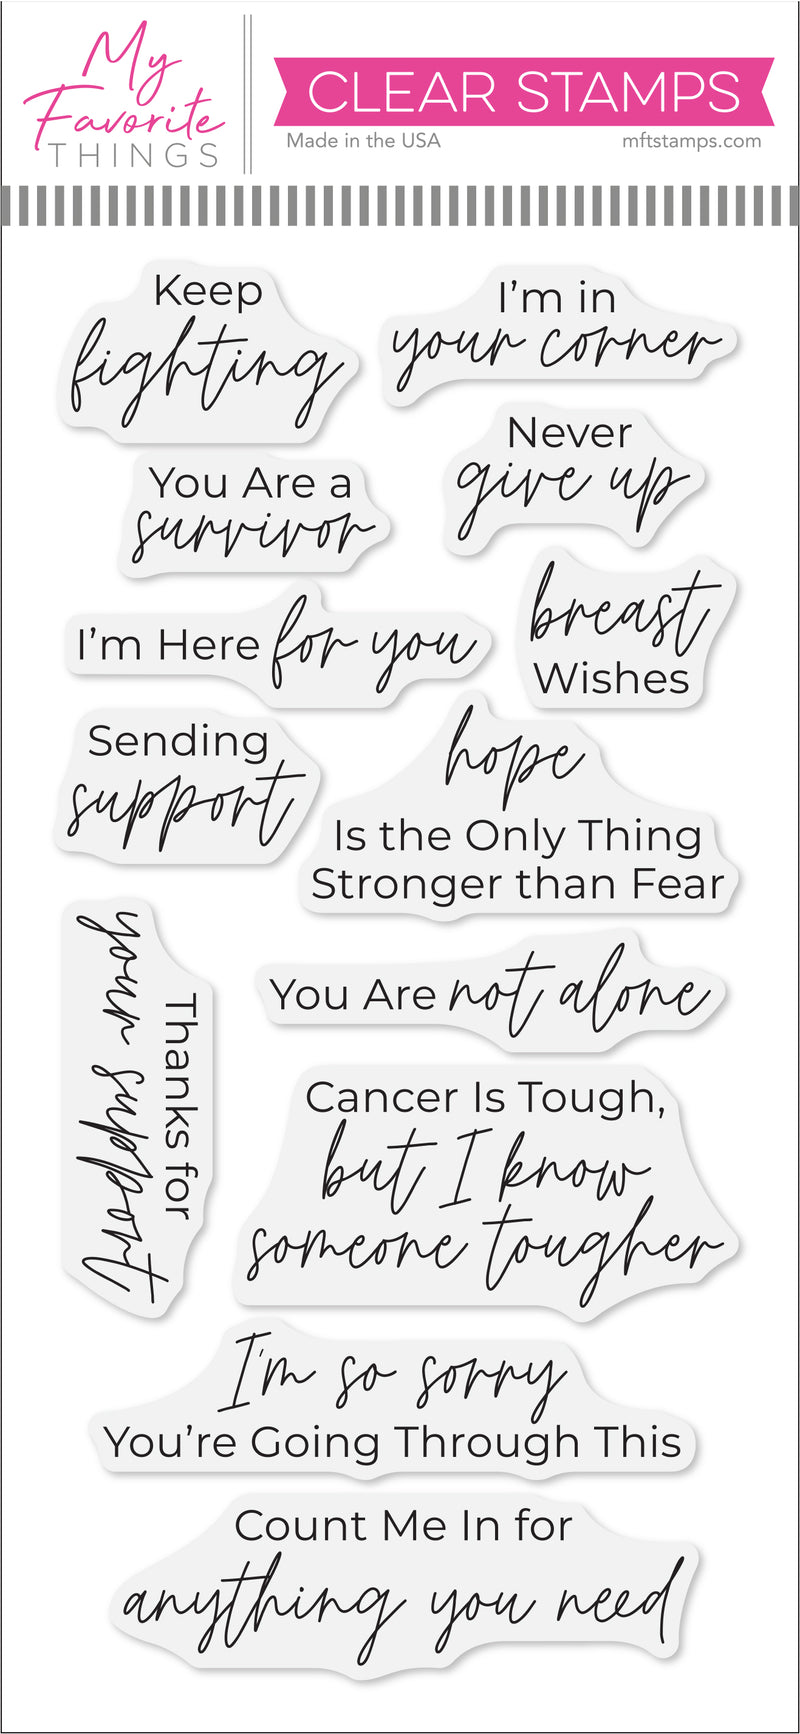 My
Favorite
THINGS
CLEAR STAMPS
Made in the USA
mftstamps.com
Keep
fighting
I'm in
your corner
Never
give up
You Are a
survivor
I'm Here for you
breast
Wishes
Sending
support
hope
Is the Only Thing
Stronger than Fear
Thanks for
your support
You Are not alone
Cancer Is Tough,
but I know
someone tougher
I'm so sorry
You're Going Through This
Count Me In for
anything you need